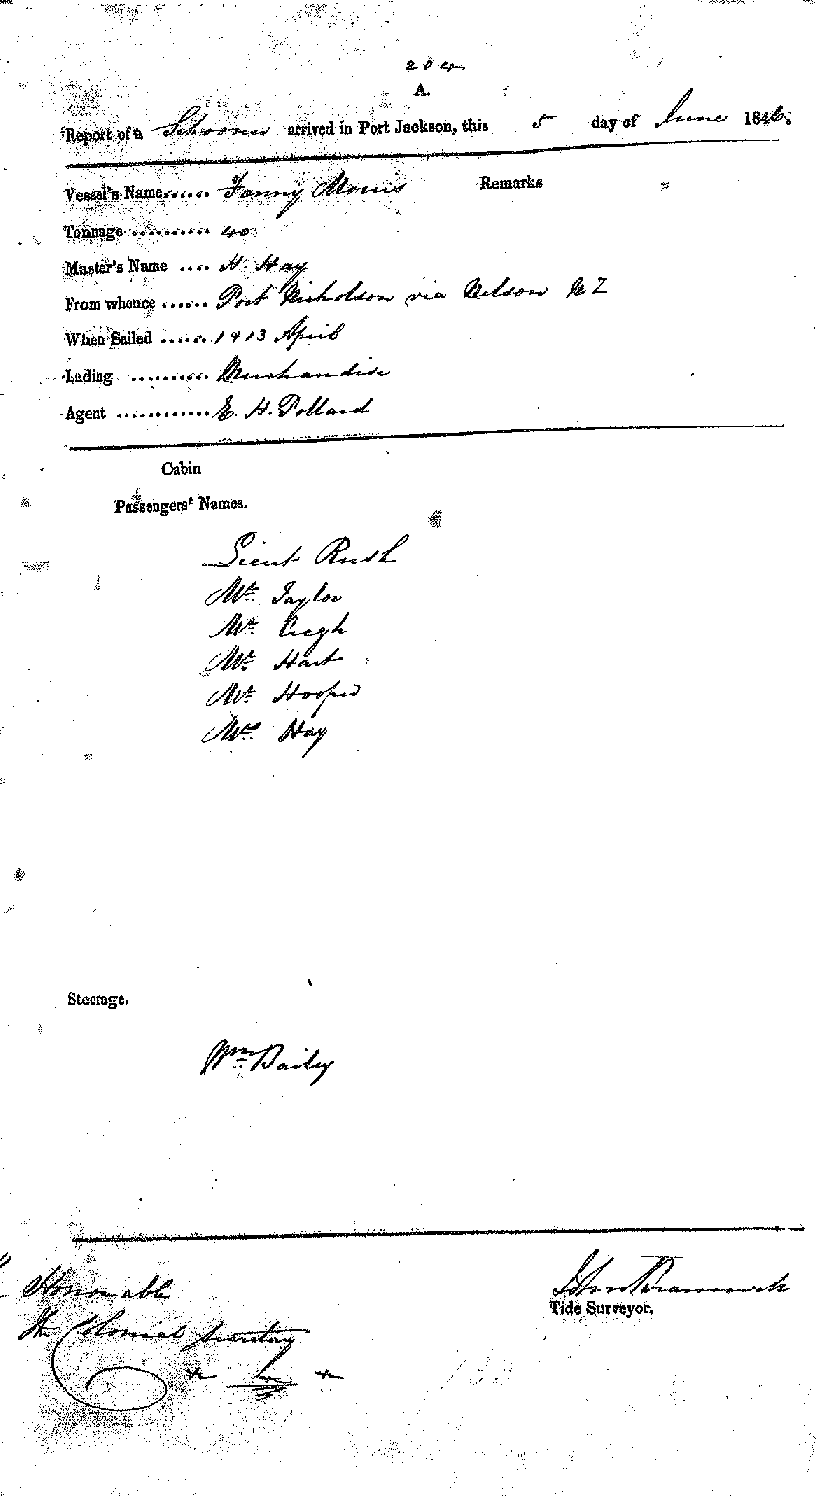 204
A.
Report of a Schooner arrived in Port Jackson, this 5 day of June 1846.
Vessel's Name...... Fanny Morris Remarks
Tonnage .......... 40
Master's Name .... H. Hay
From whence ...... Port Nicholson via Nelson N Z
When Sailed ...... 1 & 13 April
Lading .......... Merchandise
Agent ............ E. H. Pollard
Cabin
Passengers' Names.
Lieut Rush
Mr. Taylor
Mr.
Mr. Hart
Mr. Hooper
Mrs Hay
Steerage.
Wm Bailey
Honorable
The Colonial Secretary
Tide Surveyor.